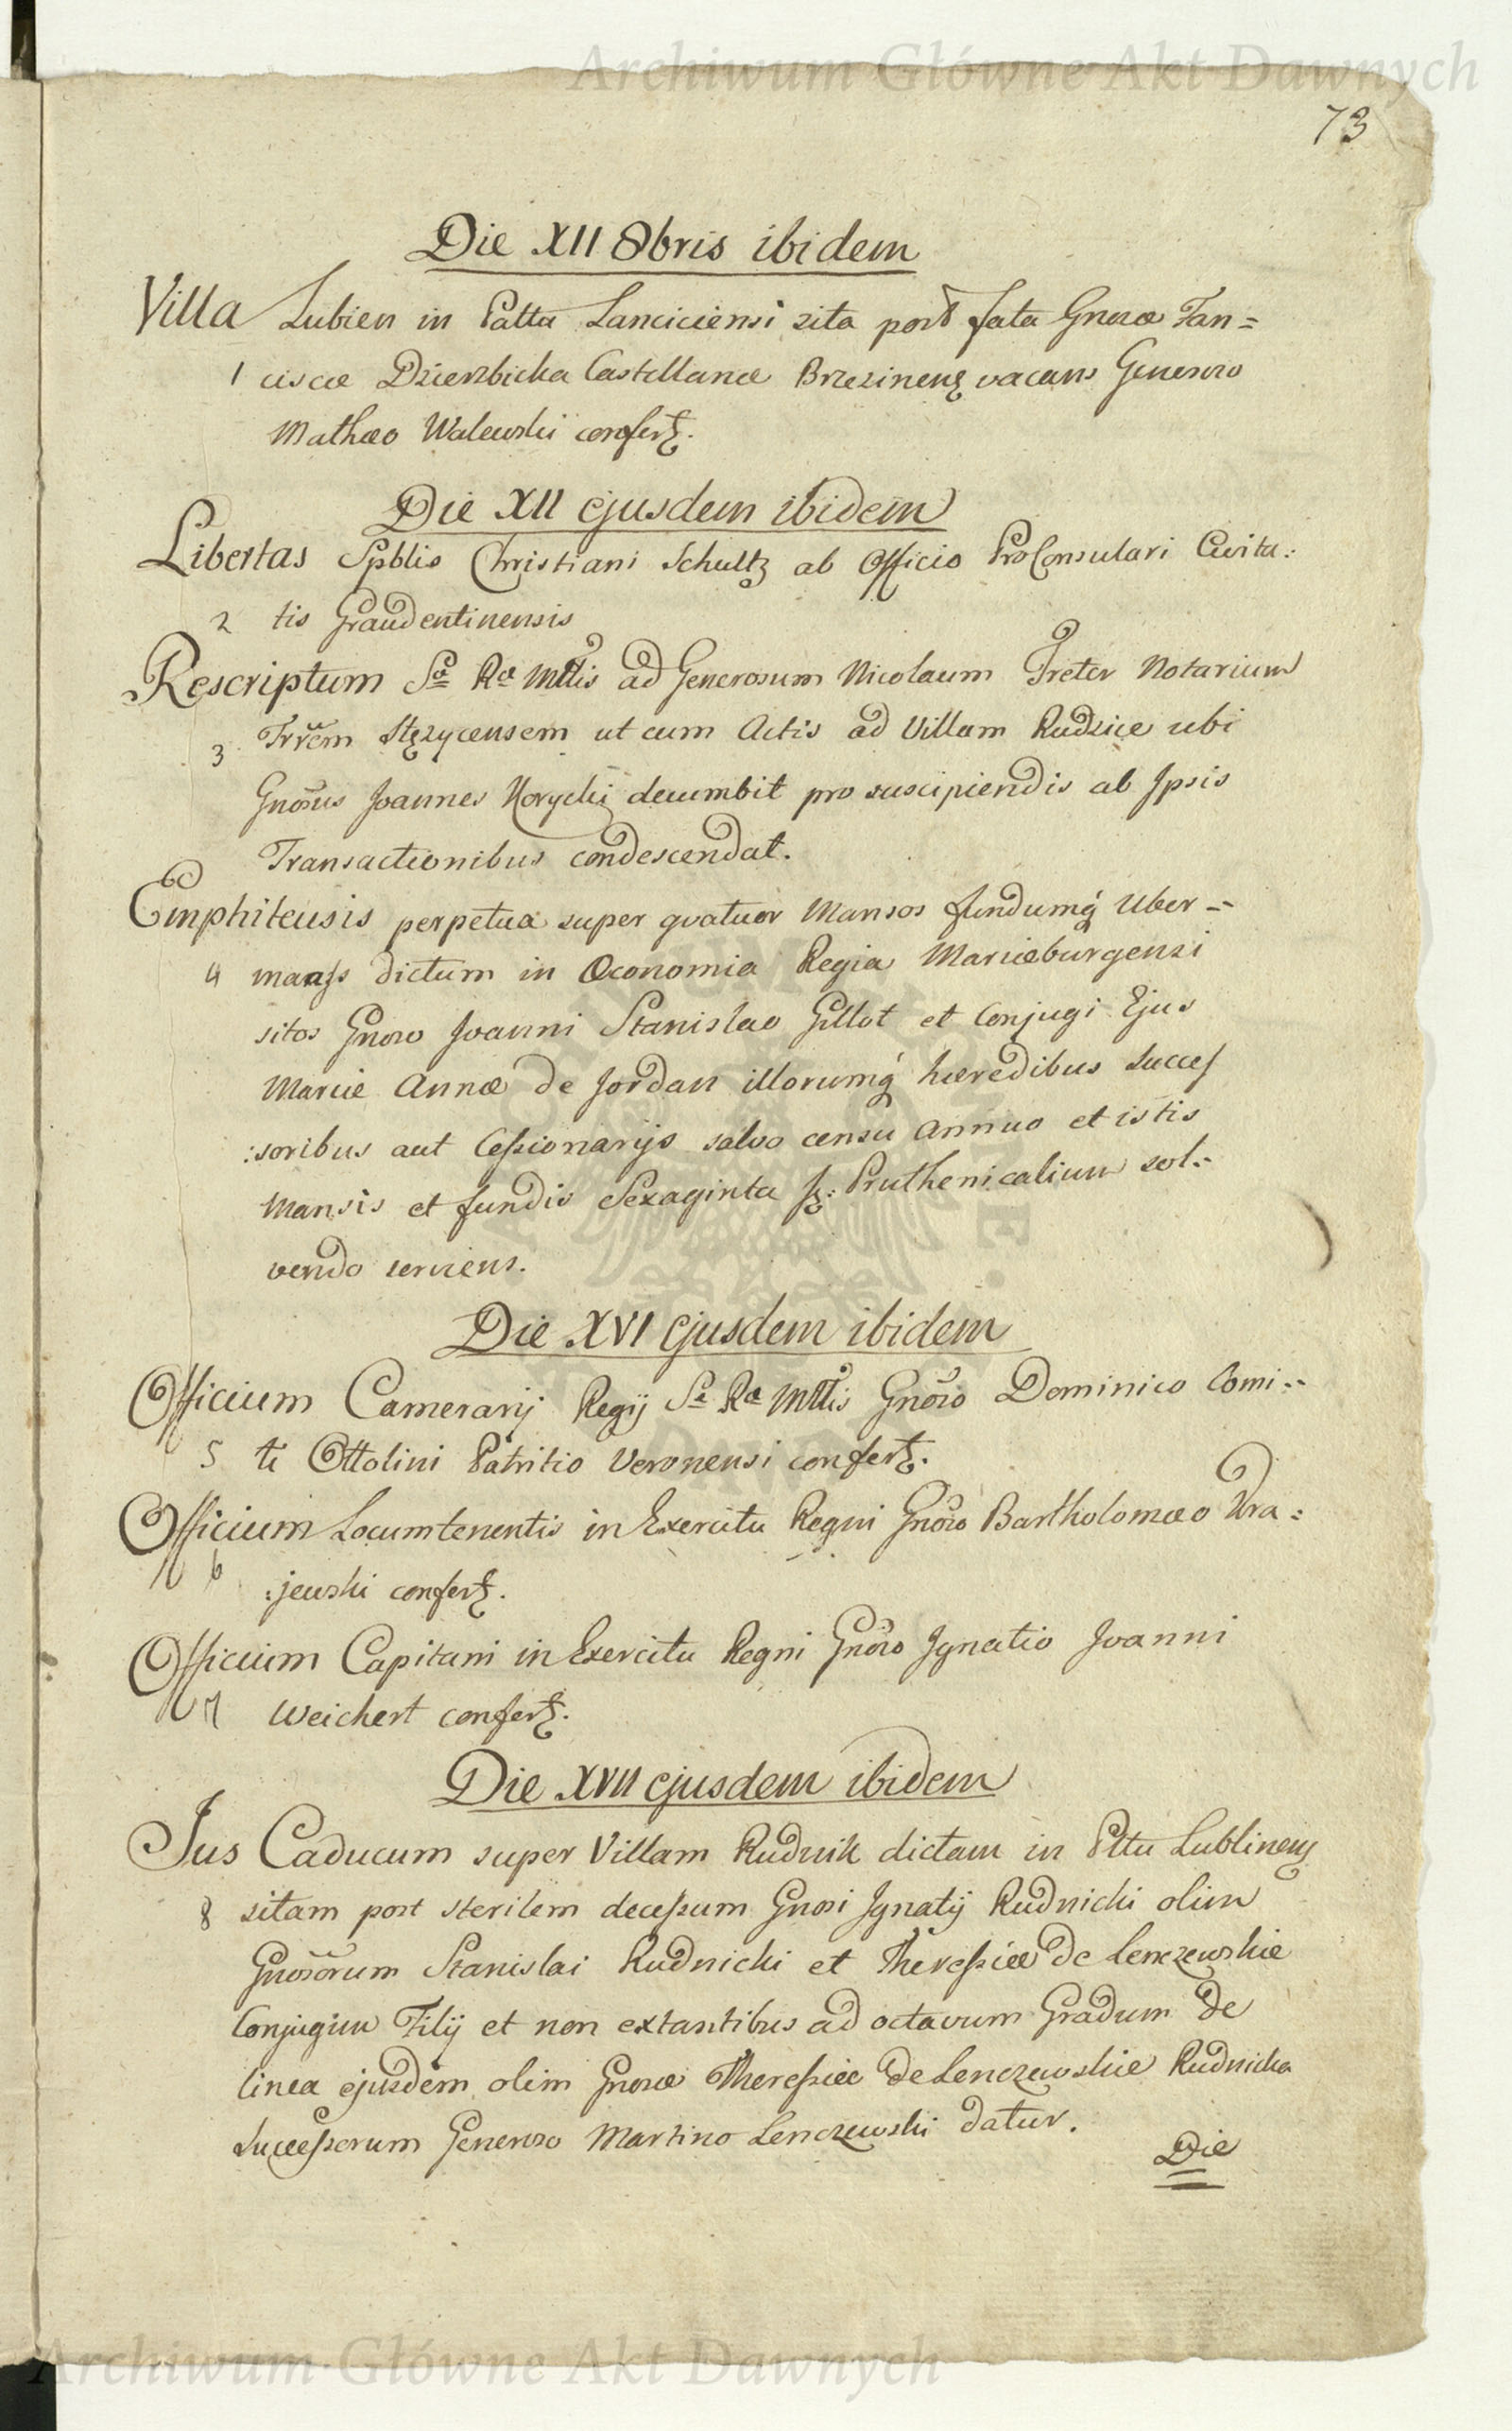 Archiwum Główne Akt Dawnych
73
Die XII 8bris ibidem
Villa Lubien in Pattu Lanciciensi sita post fata Gnosæ Fan=
1 ciscæ Dzierzbicka Castellanæ Brzezinens vacans Generoso
Mathæo Walewski confert.
Die XII ejusdem ibidem
Libertas Spblis Christiani Schultz ab Officio ProConsulari Civita:
2 tis Graudentinensis
Rescriptum Sæ Ræ Mttis ad Generosum Nicolaum Treter Notarium
3 Trrem Stęzycensem ut cum Actis ad Villam Rudzice ubi
Gnosus Joannes Norycki decumbit pro suscipiendis ab Ipsis
Transactionibus condescendat.
Emphiteusis perpetua super qvatuor Mansos fundumq́ Uber=
4 maass dictum in Œconomia Regia Mariæburgensi
sitos Gnoso Joanni Stanislao Gillot et Conjugi Ejus
Mariæ Annæ de Jordan illorumq́ hæredibus Succes
:soribus aut Cessionarijs salvo censu annuo et istis
Mansis et fundis Sexaginta Pruthenicalium sol:
vendo serviens.
Die XVI ejusdem ibidem
Officium Camerarij Regij Sæ Ræ Mttis Gnoso Dominico Comi:
5 ti Ottolini Patritio Veronensi confert.
Officium Locumtenentis in Exercitu Regni Gnoso Bartholomæo Kra=
6 :jewski confert.
Officium Capitani in Exercitu Regni Gnoso Ignatio Joanni
7 Weichert confert.
Die XVII ejusdem ibidem
Jus Caducum super Villam Rudnik dictam in Pttu Lublinens
8 sitam post sterilem decessum Gnosi Ignatij Rudnicki olim
Gnosorum Stanislai Rudnicki et Theressiæ de Lenczewskie
Conjugum Filij et non extantibus ad octavum Gradum de
linea ejusdem olim Gnosæ Theressiæ de Lenczewskie Rudnicka
Successorum Generoso Martino Lenczewski datur.
Die
Archiwum Główne Akt Dawnych